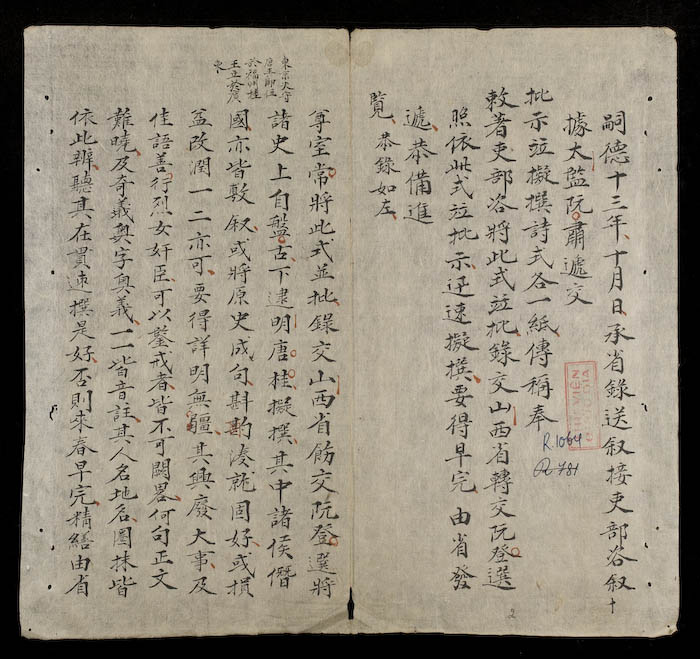 嗣德十三年十月日承省錄送叙接吏部咨叙十
據太監阮肅遞交
批示並擬撰詩式各一紙傳稱奉
敕著吏部咨將此式並批錄交山西省轉交阮登選
照依此式並批示迅速擬撰要得早完由省發
遞恭備進
覽恭錄如左
東京太守
唐王即位
於福州桂
王立於廣
尊室常將此式並批錄交山西省飭交阮登選將
諸史上自盤古下逮明唐桂擬撰其中諸侯僭
國亦皆敷叙或將原史成句斟酌湊就固好或損
益改潤一二亦可要得詳明無疆其興廢大事及
佳語善行烈女奸臣可以鑒戒者皆不可闕畧何句正文
難曉及奇義奥字奥義一一皆音註其人名地名圈抹皆
依此辨聽其在貫速撰是好否則來春早完精繕由省
THƯ VIEN
R.1064
R 781
2